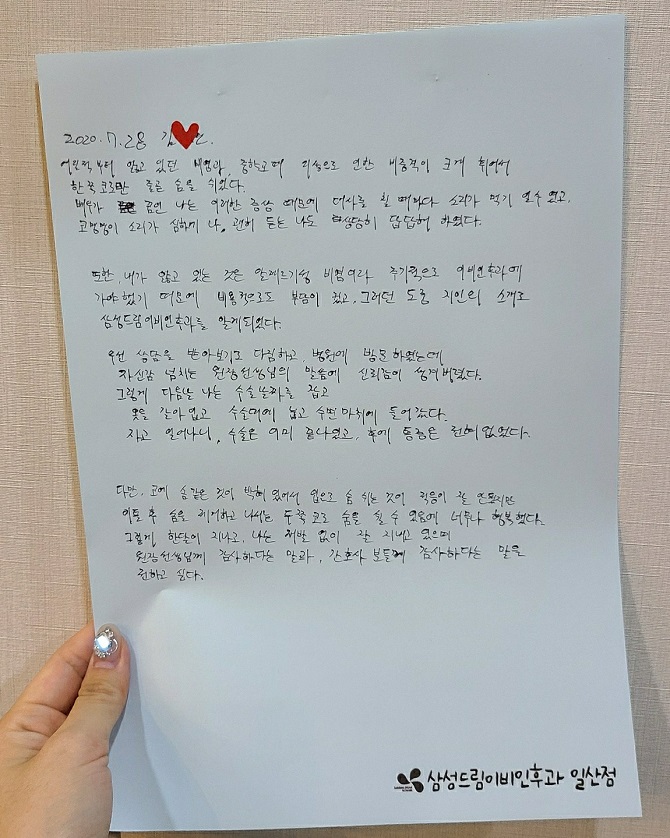 2020. 7. 28 김
어릴적부터 앓고 있던 비염과, 중학교때 외상으로 인한 비중격이 크게 휘어서
한쪽 코로만 줄곧 숨을 쉬었다.
배우가 꿈인 나는 이러한 증상 때문에 대사를 칠 때마다 소리가 먹기 일수였고,
코맹맹이 소리가 심하게 나, 괜히 듣는 나도 상당히 답답해 하였다.
또한, 내가 앓고 있는 것은 알레르기성 비염이라 주기적으로 이비인후과에
가야했기 때문에 비용적으로도 부담이 컸고, 그러던 도중 지인의 소개로
삼성드림이비인후과를 알게되었다.
우선 상담을 받아보기로 다짐하고, 병원에 방문하였는데
자신감 넘치는 원장선생님의 말씀에 신뢰감이 생겨버렸다.
그렇게 다음날 나는 수술날짜를 잡고
옷을 갈아입고 수술대에 눕고 수면마취에 들어갔다.
자고 일어나니, 수술은 이미 끝나있었고, 후에 통증은 전혀 없었다.
다만, 코에 솜같은 것이 박혀 있어서 입으로 숨 쉬는 것이 적응이 잘 안됐지만
이틀 후 솜을 제거하고 나서는 두쪽 코로 숨을 쉴 수 있음에 너무나 행복했다.
그렇게 한달이 지나고, 나는 재발 없이 잘 지내고 있으며
원장선생님께 감사하다는 말과, 간호사분들께 감사하다는 말을
전하고 싶다.
삼성드림이비인후과 일산점